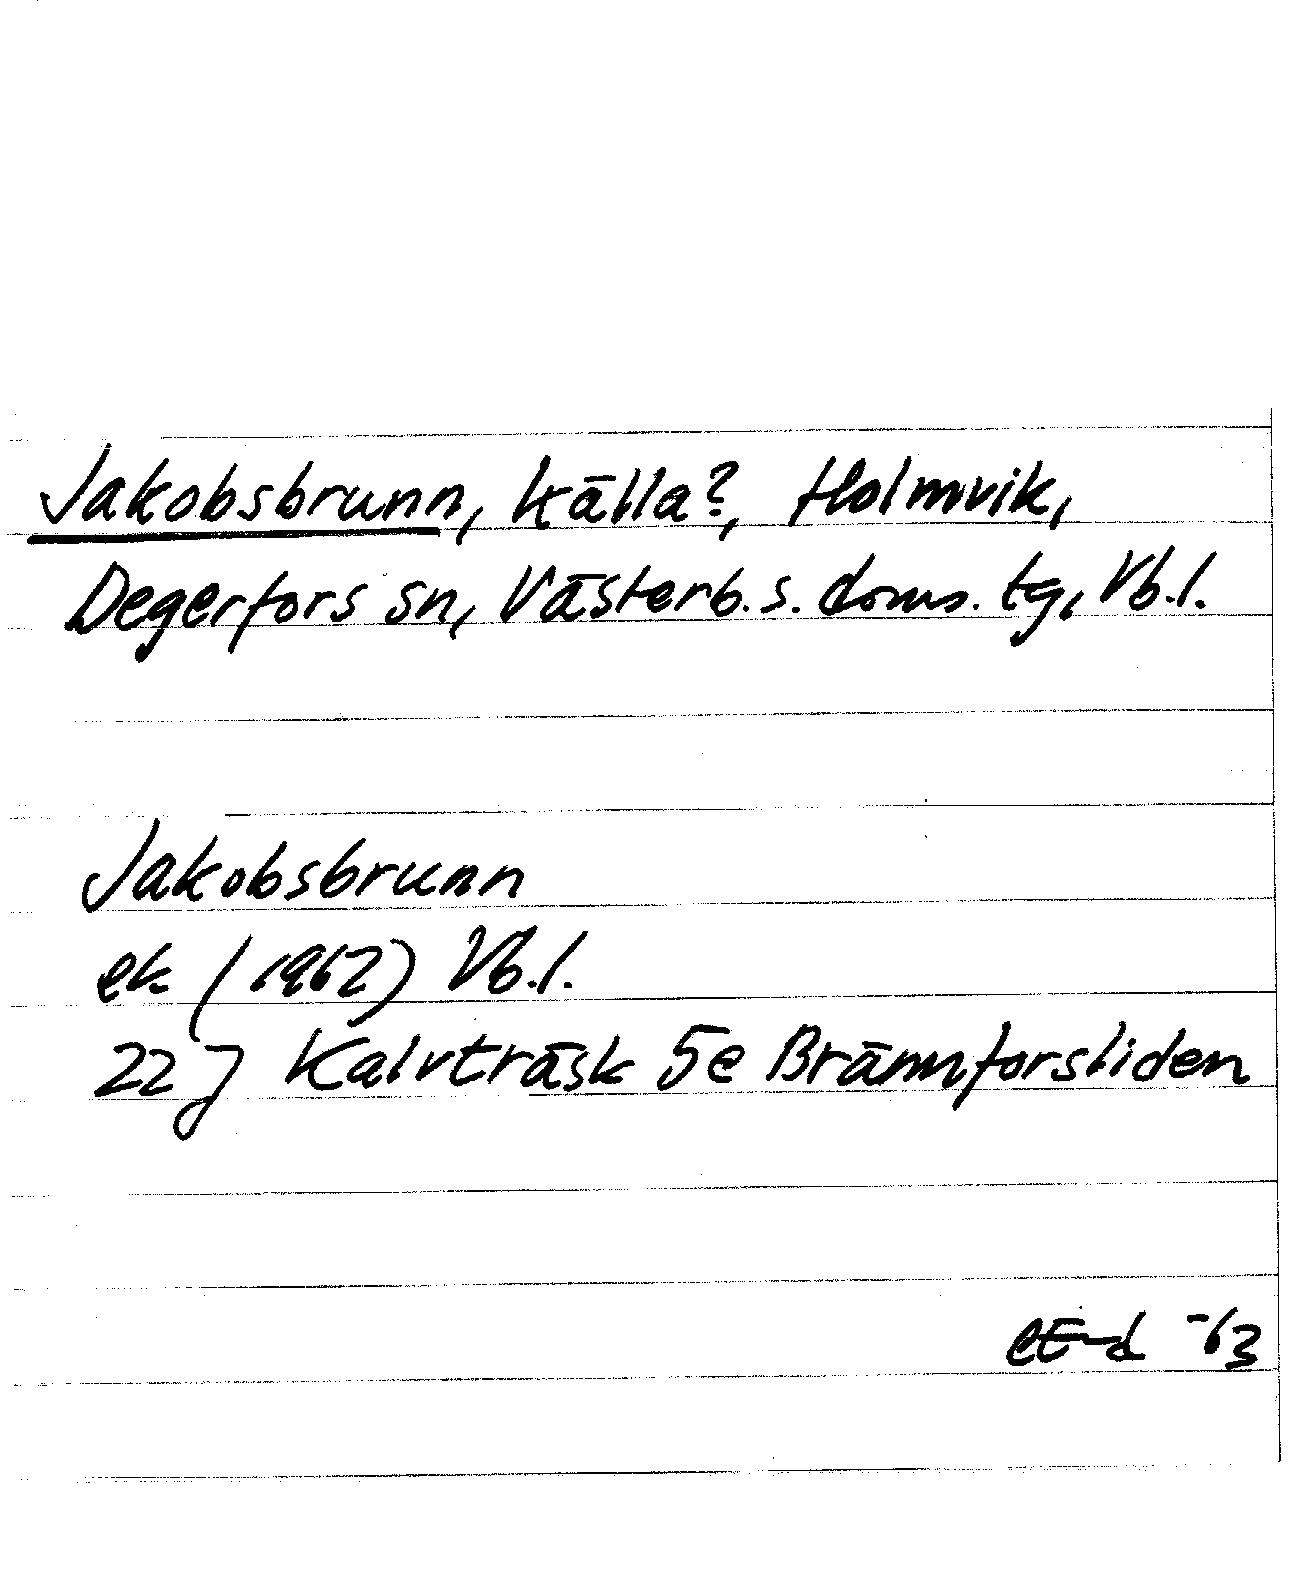 Jakobsbrunn, källa?, Holmvik,
Degerfors sn, Västerb. s. doms. tg, Vb.l.
Jakobsbrunn
ek (1962) Vb.l.
22 J Kalvträsk 5e Brännforsliden
-63